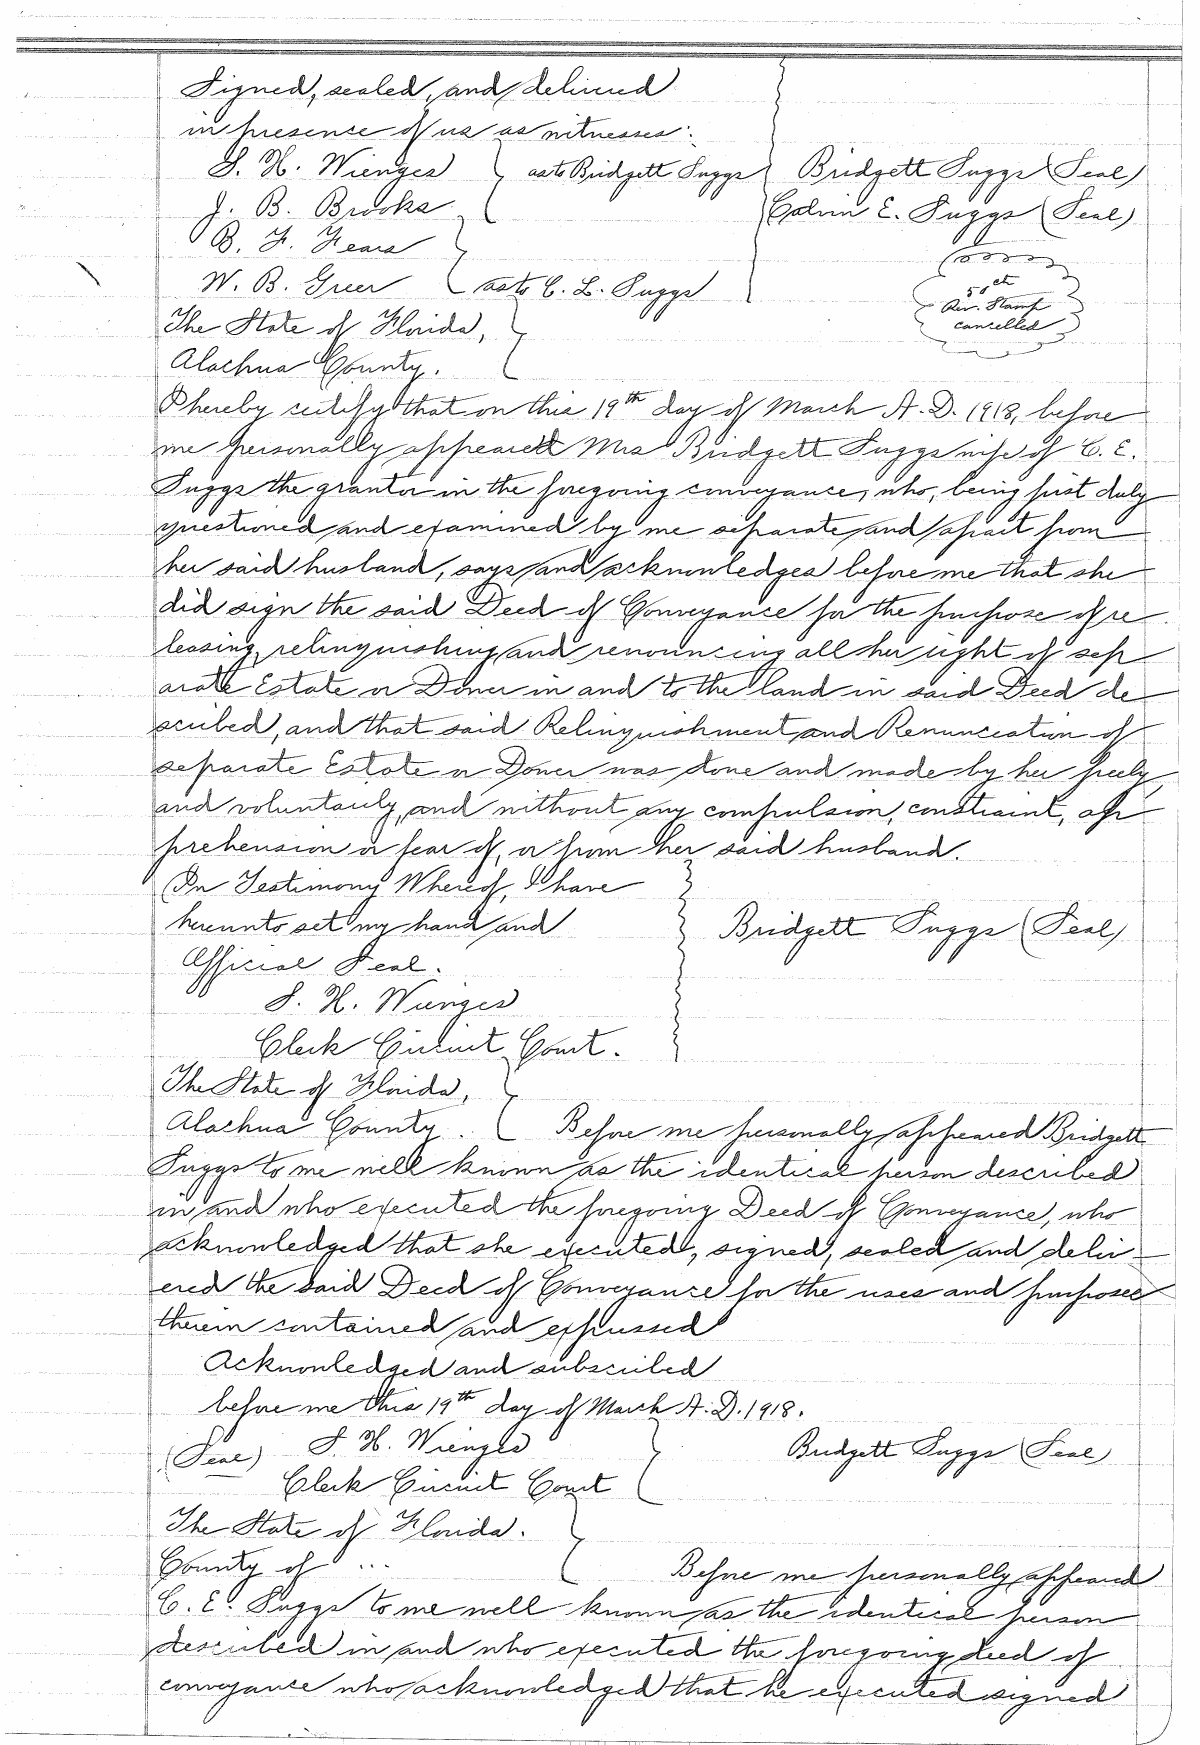 Signed, sealed, and delivered
in presence of us as witnesses:
S. H. Wienges as to Bridgett Suggs Bridgett Suggs (Seal)
J. B. Brooks Calvin E. Suggs (Seal)
B. F. Fears
W. B. Greer as to C. E. Suggs
50 ct
Rev. Stamp
cancelled
The State of Florida,
Alachua County.
I hereby certify that on this 19th day of March A.D. 1918, before
me personally appeared Mrs Bridgett Suggs wife of C. E.
Suggs the grantor in the foregoing conveyance, who, being first duly
questioned and examined by me separate and apart from
her said husband, says and acknowledges before me that she
did sign the said Deed of Conveyance for the purpose of re
leasing, relinquishing and renouncing all her right of sep
arate Estate or Dower in and to the land in said Deed de
scribed, and that said Relinquishment and Renunciation of
separate Estate or Dower was done and made by her freely
and voluntarily, and without any compulsion, constraint, ap
prehension or fear of, or from her said husband.
In Testimony Whereof, I have
hereunto set my hand and Bridgett Suggs (Seal)
Official Seal.
S. H. Wienges
Clerk Circuit Court.
The State of Florida,
Alachua County. Before me personally appeared Bridgett
Suggs to me well known as the identical person described
in and who executed the foregoing Deed of Conveyance, who
acknowledged that she executed, signed, sealed and deliv-
ered the said Deed of Conveyance for the uses and purposes
therein contained and expressed
Acknowledged and subscribed
before me this 19th day of March A.D. 1918.
(Seal) S. H. Wienges Bridgett Suggs (Seal)
Clerk Circuit Court
The State of Florida.
County of ... Before me personally appeared
C. E. Suggs to me well known as the identical person
described in and who executed the foregoing deed of
conveyance who acknowledged that he executed signed